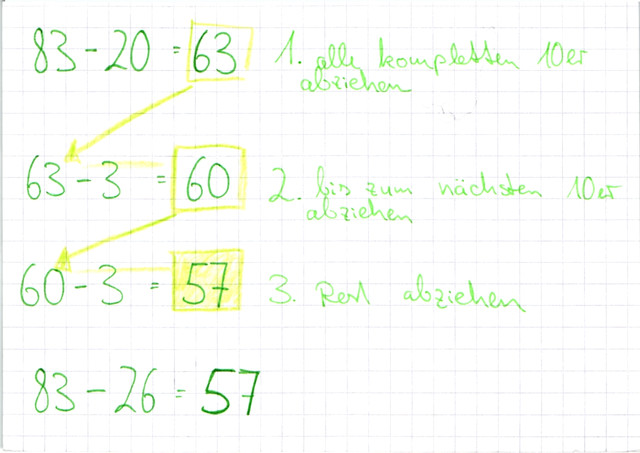 83 - 20 = 63 1. alle kompletten 10er
abziehen
63 - 3 = 60 2. bis zum nächsten 10er
abziehen
60 - 3 = 57 3. Rest abziehen
83 - 26 = 57